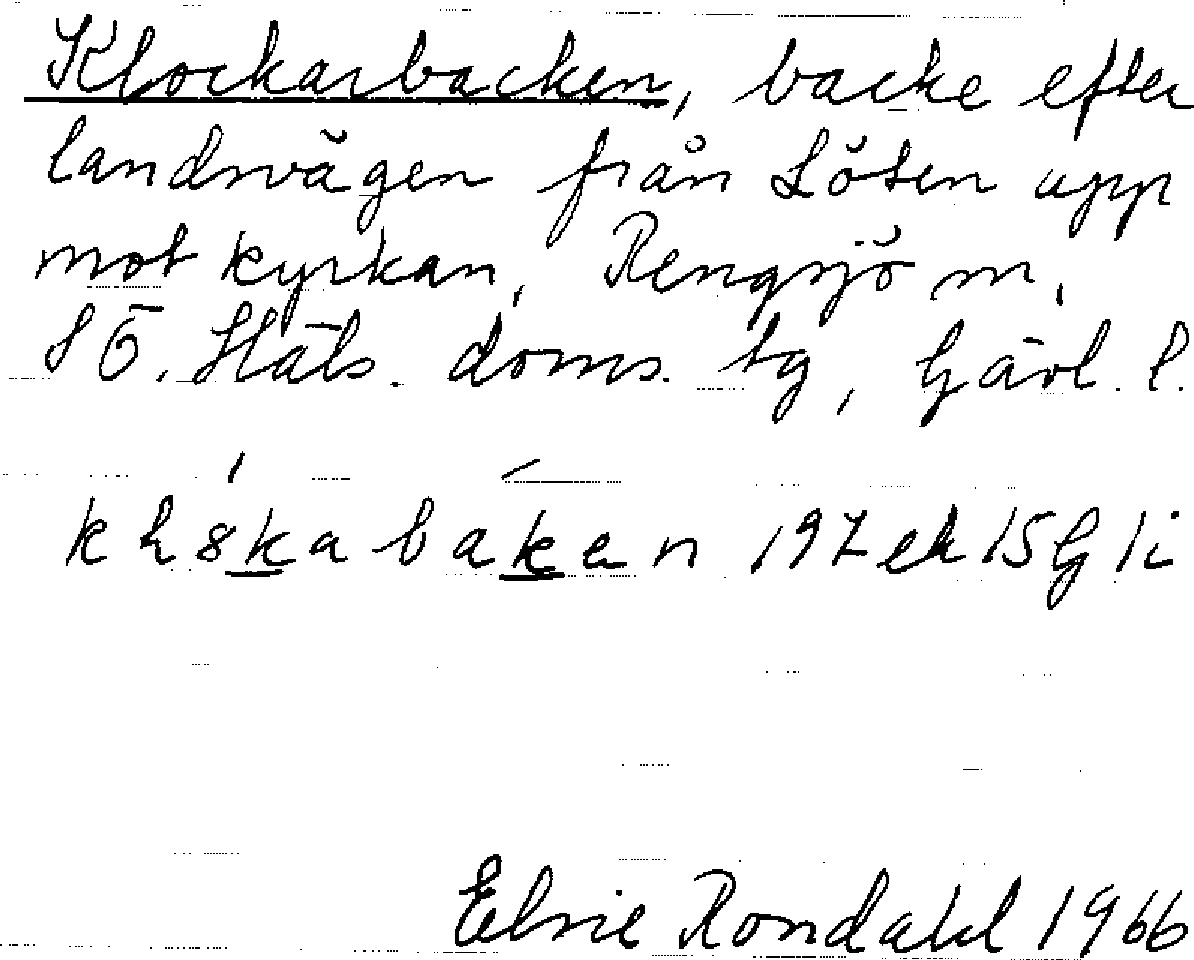 Klockarbacken, backe efter
landsvägen från Löten upp
mot kyrkan, Rengsjö sn,
SÖ. Häls. doms. tg, Gävl. l.
Elsie Rondahl 1966